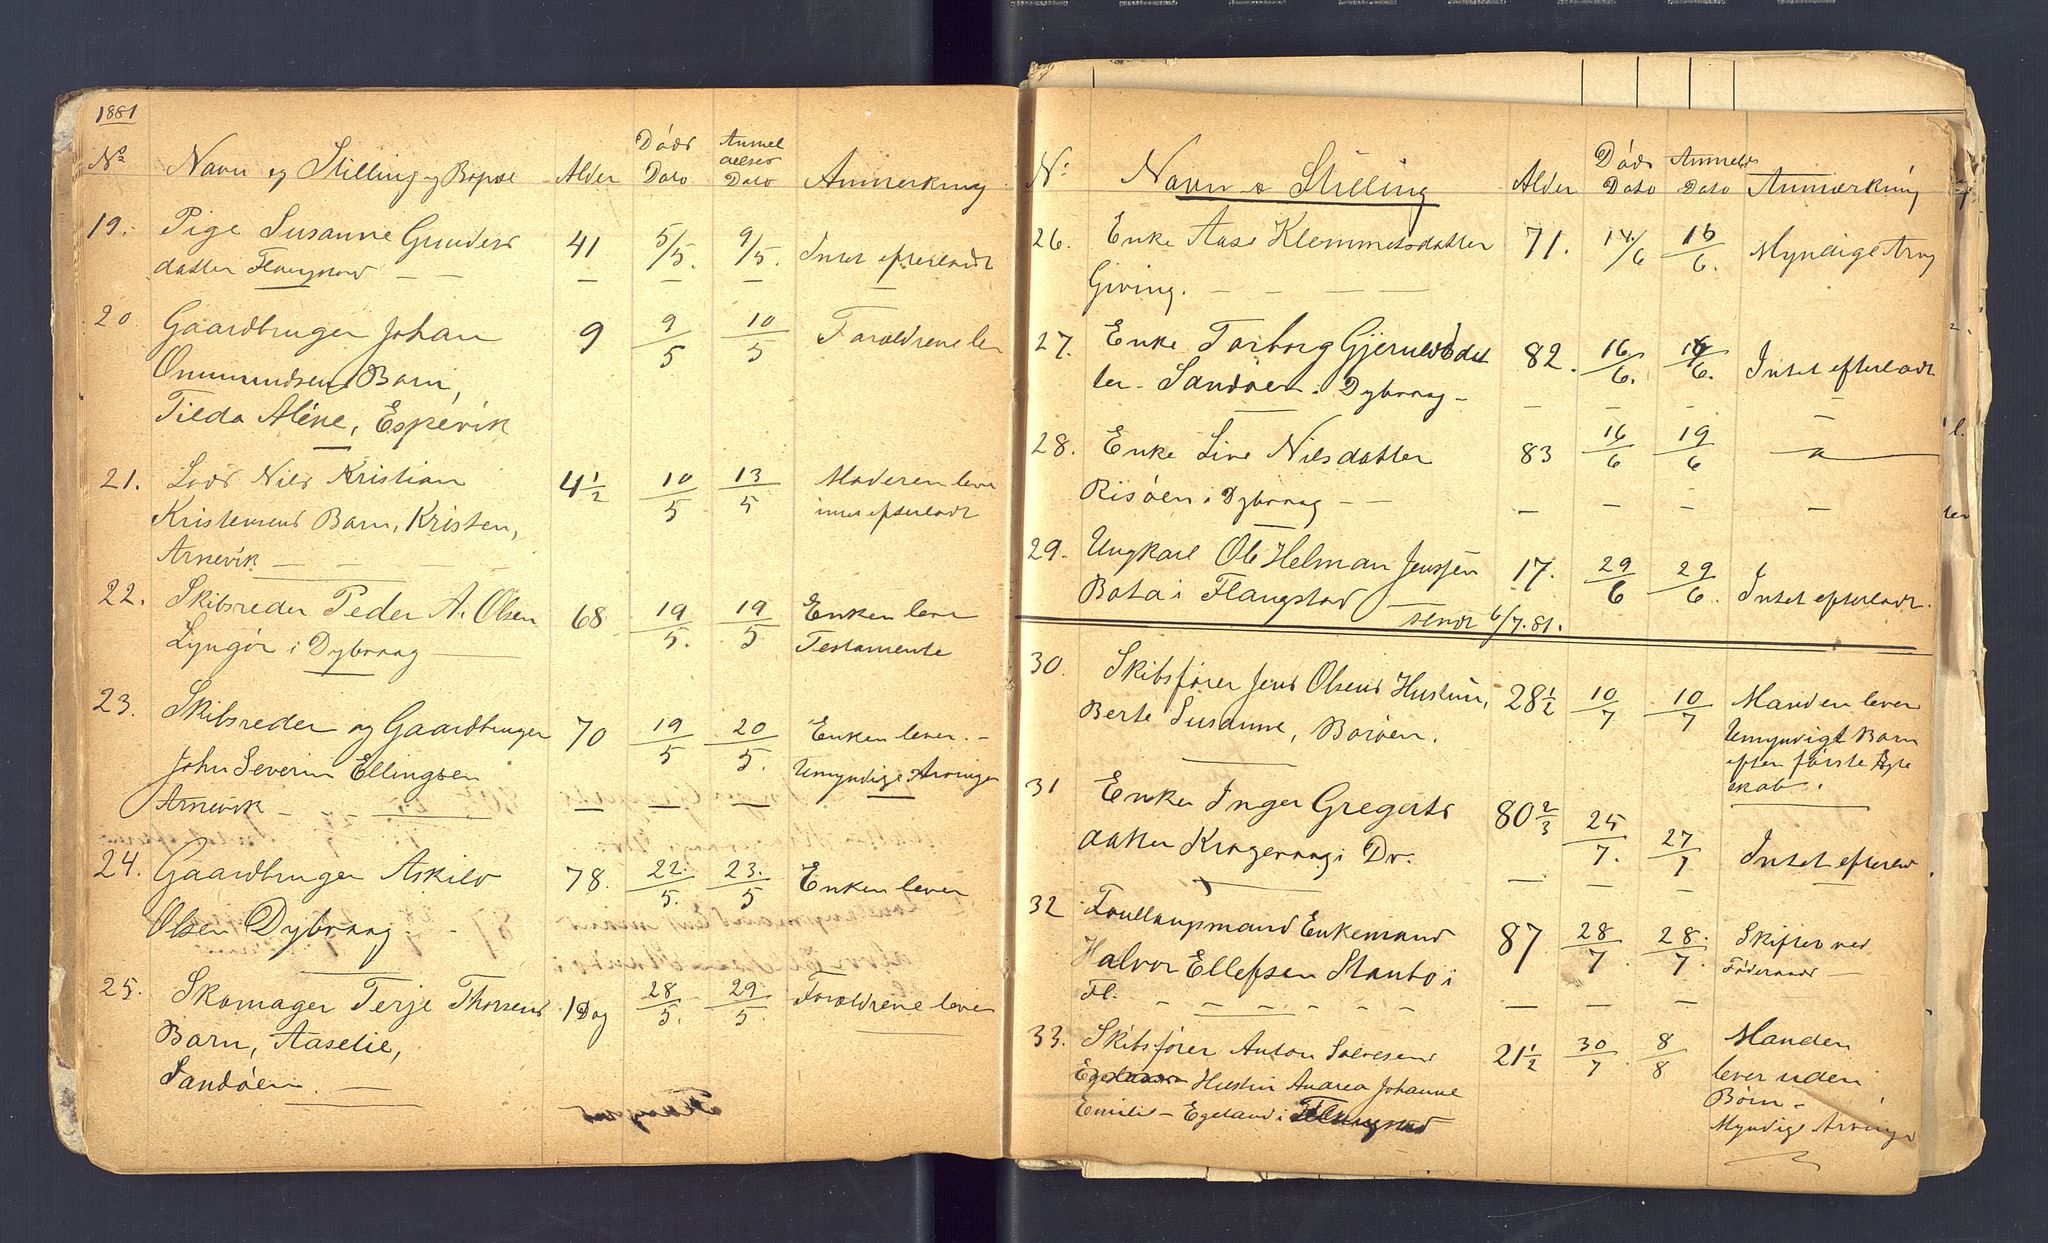 1881
No Navn og Stilling og Bopæl Alder Døds Dato Anmeldelses Dato Anmerkning
19. Pige Susanne Gunders 41 5/5 9/5. Intet efterladt
datter Flangstad — —
20 Gaardbruger Johan 9 9/5 10/5 Forældrene lever
Ommundsens Barn,
Tilda Aline, Espevik
21. Lods Nils Kristian 4 1/2 10/5 13/5 Moderen lever
Kristensens Barn, Kristen, intet efterladt
Arnevik — — — —
22. Skibsreder Peder A. Olsen 68 19/5. 19/5 Enken lever
Lyngør i Dybvaag — Testamente
23. Skibsreder og Gaardbruger 70 19/5 20/5. Enken lever. —
John Severin Ellingsen Umyndige Arvinger
Arnevik — — — —
24. Gaardbruger Askild 78. 22./5. 23./5 Enken lever
Olsen Dybvaag. —
25. Skomager Terje Thorsens 1 Dag 28/5. 29/5. Forældrene lever
Barn, Aaselie,
Sandøen. —
No Navn & Stilling Alder Døds Dato Anmelds Dato Anmærkning
26. Enke Aase Klemmetsdatter 71. 14/6 16/6. Myndige Arv
Giving. — — — —
27. Enke Torborg Gjeruldsdat 82. 16/6. 16/6. Intet efterladt
ter. Sandøen i Dybvaag — — — — —
28. Enke Live Nilsdatter 83 16/6 19/6 — " —
Risøen i Dybvaag — — — — — —
29. Ungkarl Ole Helman Jenssen 17. 29/6 29/6. Intet efterladt.
Bota i Flangstad sendt 6/7.81.
30 Skibsfører Jens Olsens Hustru, 28 1/2 10/7 10/7 Manden lever
Berte Susanne, Borøen. Umyndigt Barn
efter første Ægte
skab.
31 Enke Inger Gregerts 80 2/3 25/7. 27/7 Intet efterlad
datter Kragevaag i Dv.
32 Foullaugsmand Enkemand 87 28/7. 28./7. Skifter ved
Halvor Ellefsen Staubo i Føderaads —
Fl. — — — — — —
33. Skibsfører Anton Salvesens 21 1/2 30/7. 8/8 Manden
Hustru Andrea Johanne lever uden
Emilie — Egeland i Flangstad Børn —
Myndige Arvinge